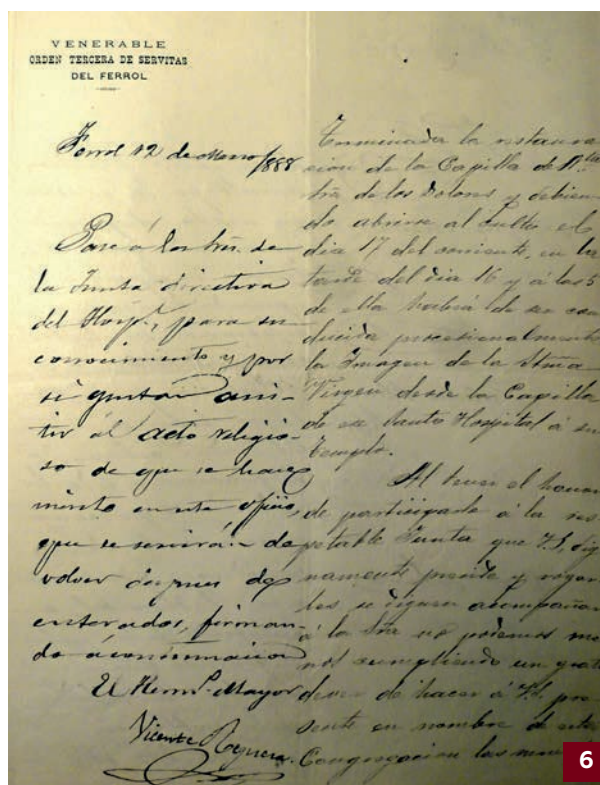 VENERABLE
ORDEN TERCERA DE SERVITAS
DEL FERROL
Ferrol 12 de Marzo/888
Pase á los Sres. de
la Junta directiva
del Hospl., para su
conocimiento y por
si gustan asis-
tir al acto religio-
so de que se hace
mérito en este oficio,
que se servirán de
volver despues de
enterados, firman-
do á continuacion
El Hermo. Mayor
Vicente Reguera.
Terminada la restaura-
cion de la Capilla de Ntra
Sra de los Dolores y debien-
do abrirse al culto el
dia 17 del corriente, en la
tarde del dia 16 y á las 5
de ella habrá de ser con-
ducida procesionalmente
la Imagen de la Stma
Virgen desde la Capilla
de ese Santo Hospital á su
Templo.
Al tener el honor
de participarle á la res-
petable Junta que V.S. dig-
namente preside y rogar-
les se dignen acompañar
á la Sra no podemos me-
nos cumpliendo un grato
deber de hacer á V.S. pre-
sente en nombre de esta
Congregacion las
6